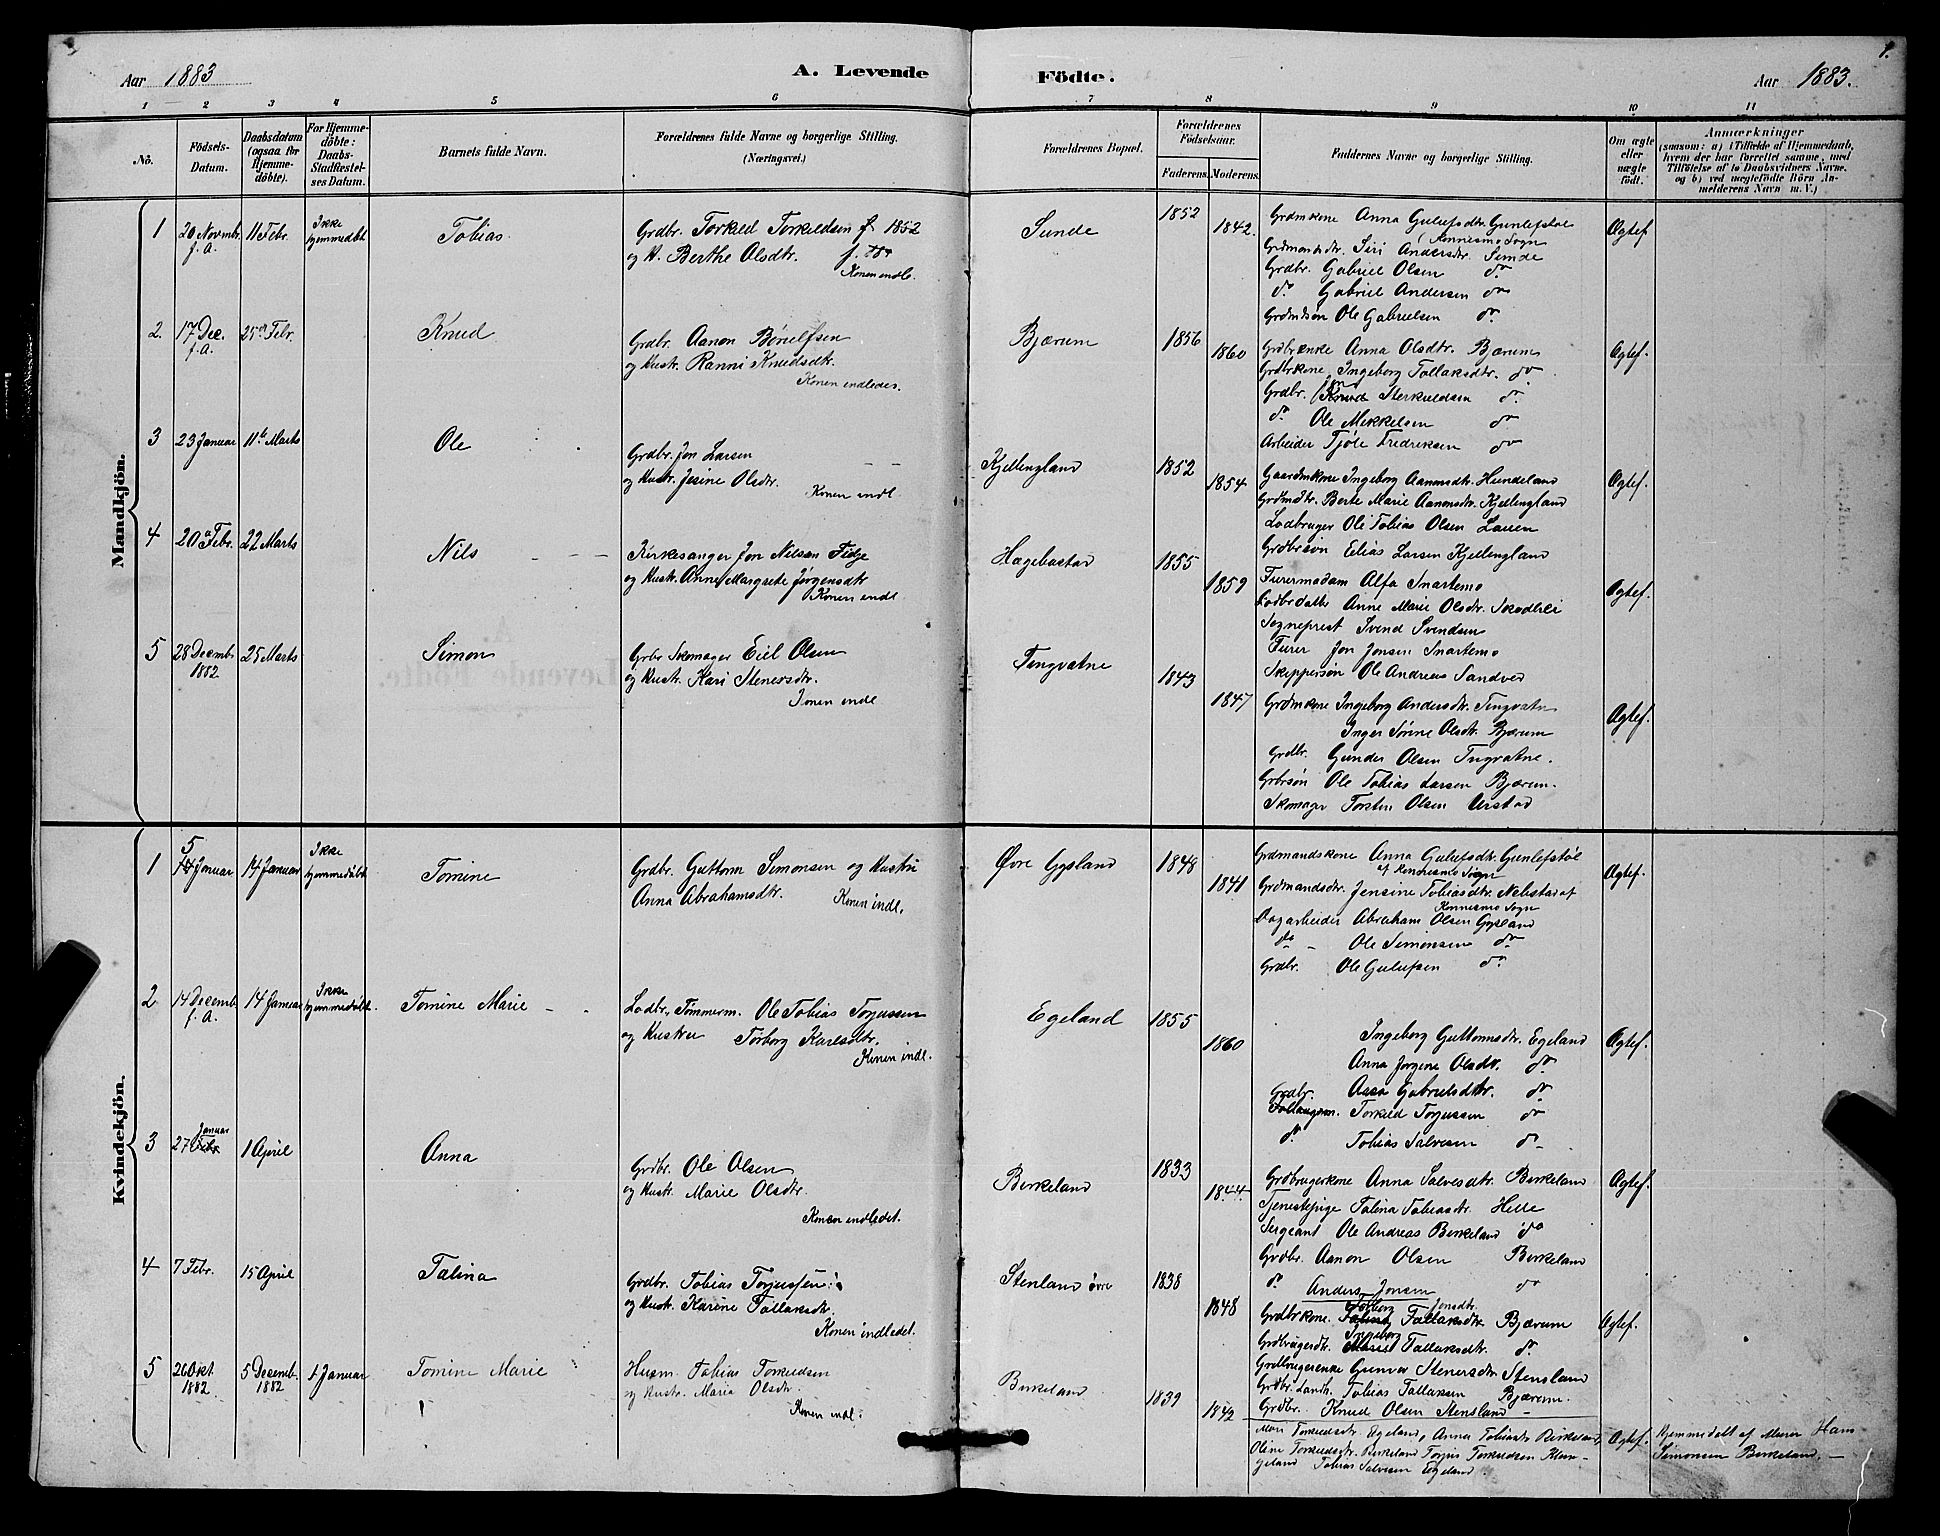 Aar 1883
A. Levende
Födte.
Aar 1883.
1.
1 2 3 4 5 6 7 8 9 10 11
No.
Födsels-
Datum.
Daabsdatum
(ogsaa for
Hjemme-
döbte).
For Hjemme-
döbte:
Daabs-
Stadfæstel-
ses Datum.
Barnets fulde Navn.
Forældrenes fulde Navne og borgerlige Stilling.
(Næringsvei.)
Forældrenes Bopæl.
Forældrenes
Födselsaar.
Faderens. Moderens.
Faddernes Navne og borgerlige Stilling.
Om ægte
eller
uægte
födt.
Anmærkninger
(saasom: a) i Tilfælde af Hjemmedaab,
hvem der har forrettet samme, med
Tilföielse af to Daabsvidners Navne,
og b) ved uægtefödte Börn An-
melderens Navn m. V.)
Mandkjön.
1 20 Novmbr. 11 Febr. Ikke
f. A. hjemmedøbt
Tobias
Grdbr. Torkild Torkildsen f 1852
og H. Berthe Olsdtr.
Konen indle.
Sunde
1852
1842.
Grdmkone Anna Gulufsdtr. Gunlefstøl
Konnesmo Sogn
Grdmandsdtr. Siri Andersdtr. Sunde
Grdbr. Gabriel Olsen do
do Gabriel Andersen do
Grdmdsøn Ole Gabrielsen do
Ægtef
2. 17 Dec. 25 Febr.
f. A.
Knud
Grdbr. Aanon Børuelfsen
og Hustr. Ranni Knudsdtr.
Konen indledes.
Bjærum
1856
1860
Grdbrenke Anna Olsdtr. Bjærum
Grdbrkone Ingeborg Tallaksdtr. do
Grdbr. Knud Sterkuldsen do
do Ole Mikkelsen do
Arbeider Tjøle Fredriksen do
Ægtef.
3 23 Januar 11te Marts
Ole
Grdbr. Jon Larsen
og Hustr. Jesine Olsdtr.
Konen indl.
Kjellingland
1852
1854
Gaardmkone Ingeborg Aanonsdtr. Hundeland
Grdmdtr. Berte Marie Aanonsdtr. Kjellingland
Lodbruger Ole Tobias Olsen Lauen
Grdbrsøn Elias Larsen Kjellingland
Ægtef.
4 20 Febr. 22 Marts
Nils
Kirkesanger Jon Nilsen Fidje
og Hustr. Anne Margrete Jørgensdtr
Konen indl.
Hægebostad
1855
1859
Furermadam Alfa Snartemo
Lodbrdatter Anne Marie Olsdtr. Skodlei
Sogneprest Svend Svendsen
Furer Jon Jonsen Snartemo
Skippersøn Ole Andreas Sandved
Ægtef.
5 28 Decembr 25 Marts
1882
Simon
Grbr Skomager Eiel Olsen
og Hustr. Kari Stenersdtr.
Konen indl
Tingvatne
1843
1847
Grdmkone Ingeborg Andersdtr. Tingvatn
Inger Sørine Olsdtr. Bjærum
Grdbr. Gunder Olsen Tingvatne.
Grbrsøn Ole Tobias Larsen Bjærum.
Skomager Torsten Olsen Verstad
Ægtef.
Kvindekjön.
1 5 Januar 14 Januar Ikke
hjemmedøbt
Tomine
Grdbr. Guttorm Simonsen og Hustru
Anna Abrahamsdtr.
Konen indl.
Øvre Gysland
1848
1841
Grdmandskone Anna Gulufsdtr. Gunlefstøl
af Konnesmo Sogn
Grdmandsdtr. Jensine Tobiasdtr. Nebstad af
Konnesmo Sogn
Dagarbeider Abraham Olsen Gysland
do Ole Simonsen do
Grdbr. Ole Gulufsen do
Ægtef.
2 14 Decemb 14 Januar Ikke
f. A. hjemmedøbt.
Tomine Marie
Lodbr., Tømmerm. Ole Tobias Torjussen
og Hustru Torborg Karlsdtr.
Konen indl.
Egeland
1855
1860
Ingeborg Guttormsdtr. Egeland
Anna Jørgine Olsdtr. do
Aasa Gabrielsdtr. do
Grdbr. Torkild Torjussen do
do Tobias Salvesen do
Ægtef.
3 27 Januar 1 April
Anna
Grdbr. Ole Olsen
og Hustr. Marie Olsdtr.
Konen indledet.
Birkeland
1833
1844
Grdbrugerkone Anna Salvesdtr. Birkeland
Tjenestepige Talina Tobiasdtr. Helle
Sergeant Ole Andreas Birkeland do
Grdbr. Aanon Olsen Birkeland
do Anders Jonsen do
Ægtef.
4 7 Febr. 15 April
Talina
Grdbr. Tobias Torjussen
og Hustr. Karine Tallaksdtr.
Konen indledet.
Stenland øvre
1838
1848
Grdbrkone. Tallaksdtr. Jonsdtr. Bjærum
Grdbrugerdtr. Ingeborg Tallaksdtr. do
Grdbrugerenke Gunvor Stenersdtr. Stensland
Grdbr. Tobias Tallaksen Bjærum.
Grdbr. Knud Olsen Stensland
Ægtef.
5 26 Okt 5 Decemb. 1 Januar
1882 1882
Tomine Marie
Husm. Tobias Torkildsen
og Hustr. Maria Olsdtr.
Konen indl.
Birkeland
1839
1842
Mari Torkildsdtr. Egeland, Anna Tobiasdtr Birkeland,
Oline Torkildsdtr. Birkeland Torjus Torkildsen
Tobias Salvesen Egeland
Ægtef.
Hjemmedøbt af Murer Hans
Simonsen Birkeland.